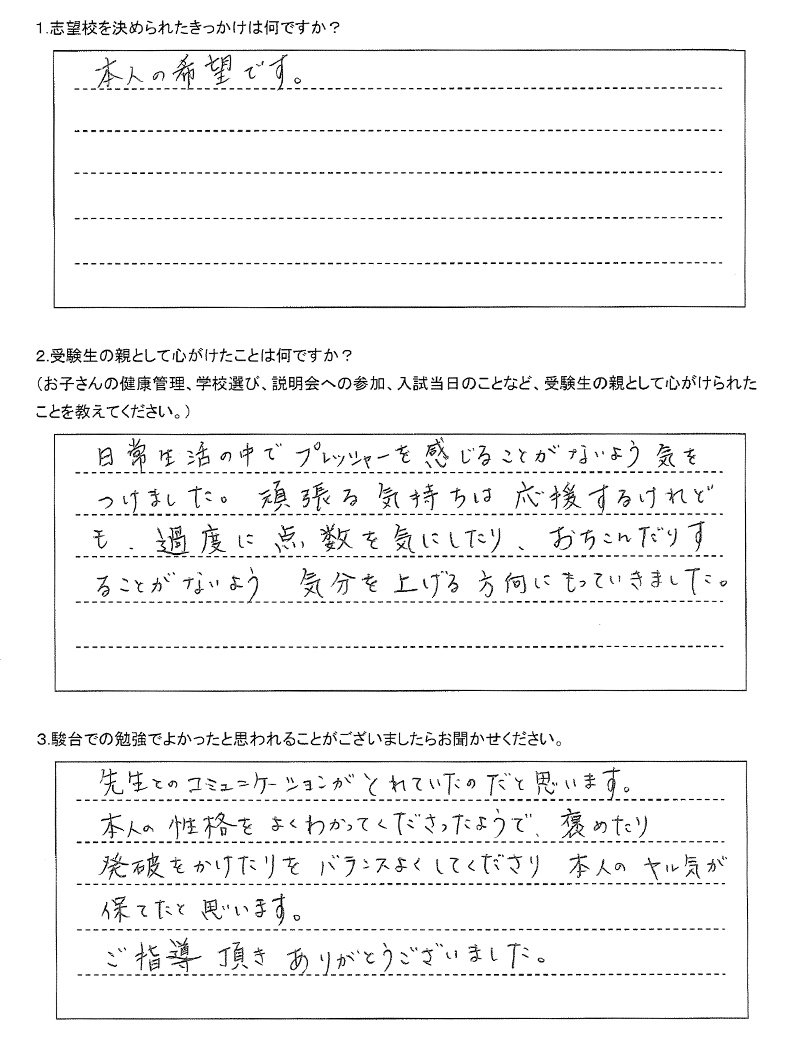 1.志望校を決められたきっかけは何ですか？
本人の希望です。
2.受験生の親として心がけたことは何ですか？
（お子さんの健康管理、学校選び、説明会への参加、入試当日のことなど、受験生の親として心がけられた
ことを教えてください。）
日常生活の中でプレッシャーを感じることがないよう気を
つけました。頑張る気持ちは応援するけれど
も、過度に点数を気にしたり、おちこんだりす
ることがないよう 気分を上げる方向にもっていきました。
3.駿台での勉強でよかったと思われることがございましたらお聞かせください。
先生とのコミュニケーションがとれていたのだと思います。
本人の性格をよくわかってくださったようで、褒めたり
発破をかけたりをバランスよくしてくださり 本人のヤル気が
保てたと思います。
ご指導頂きありがとうございました。